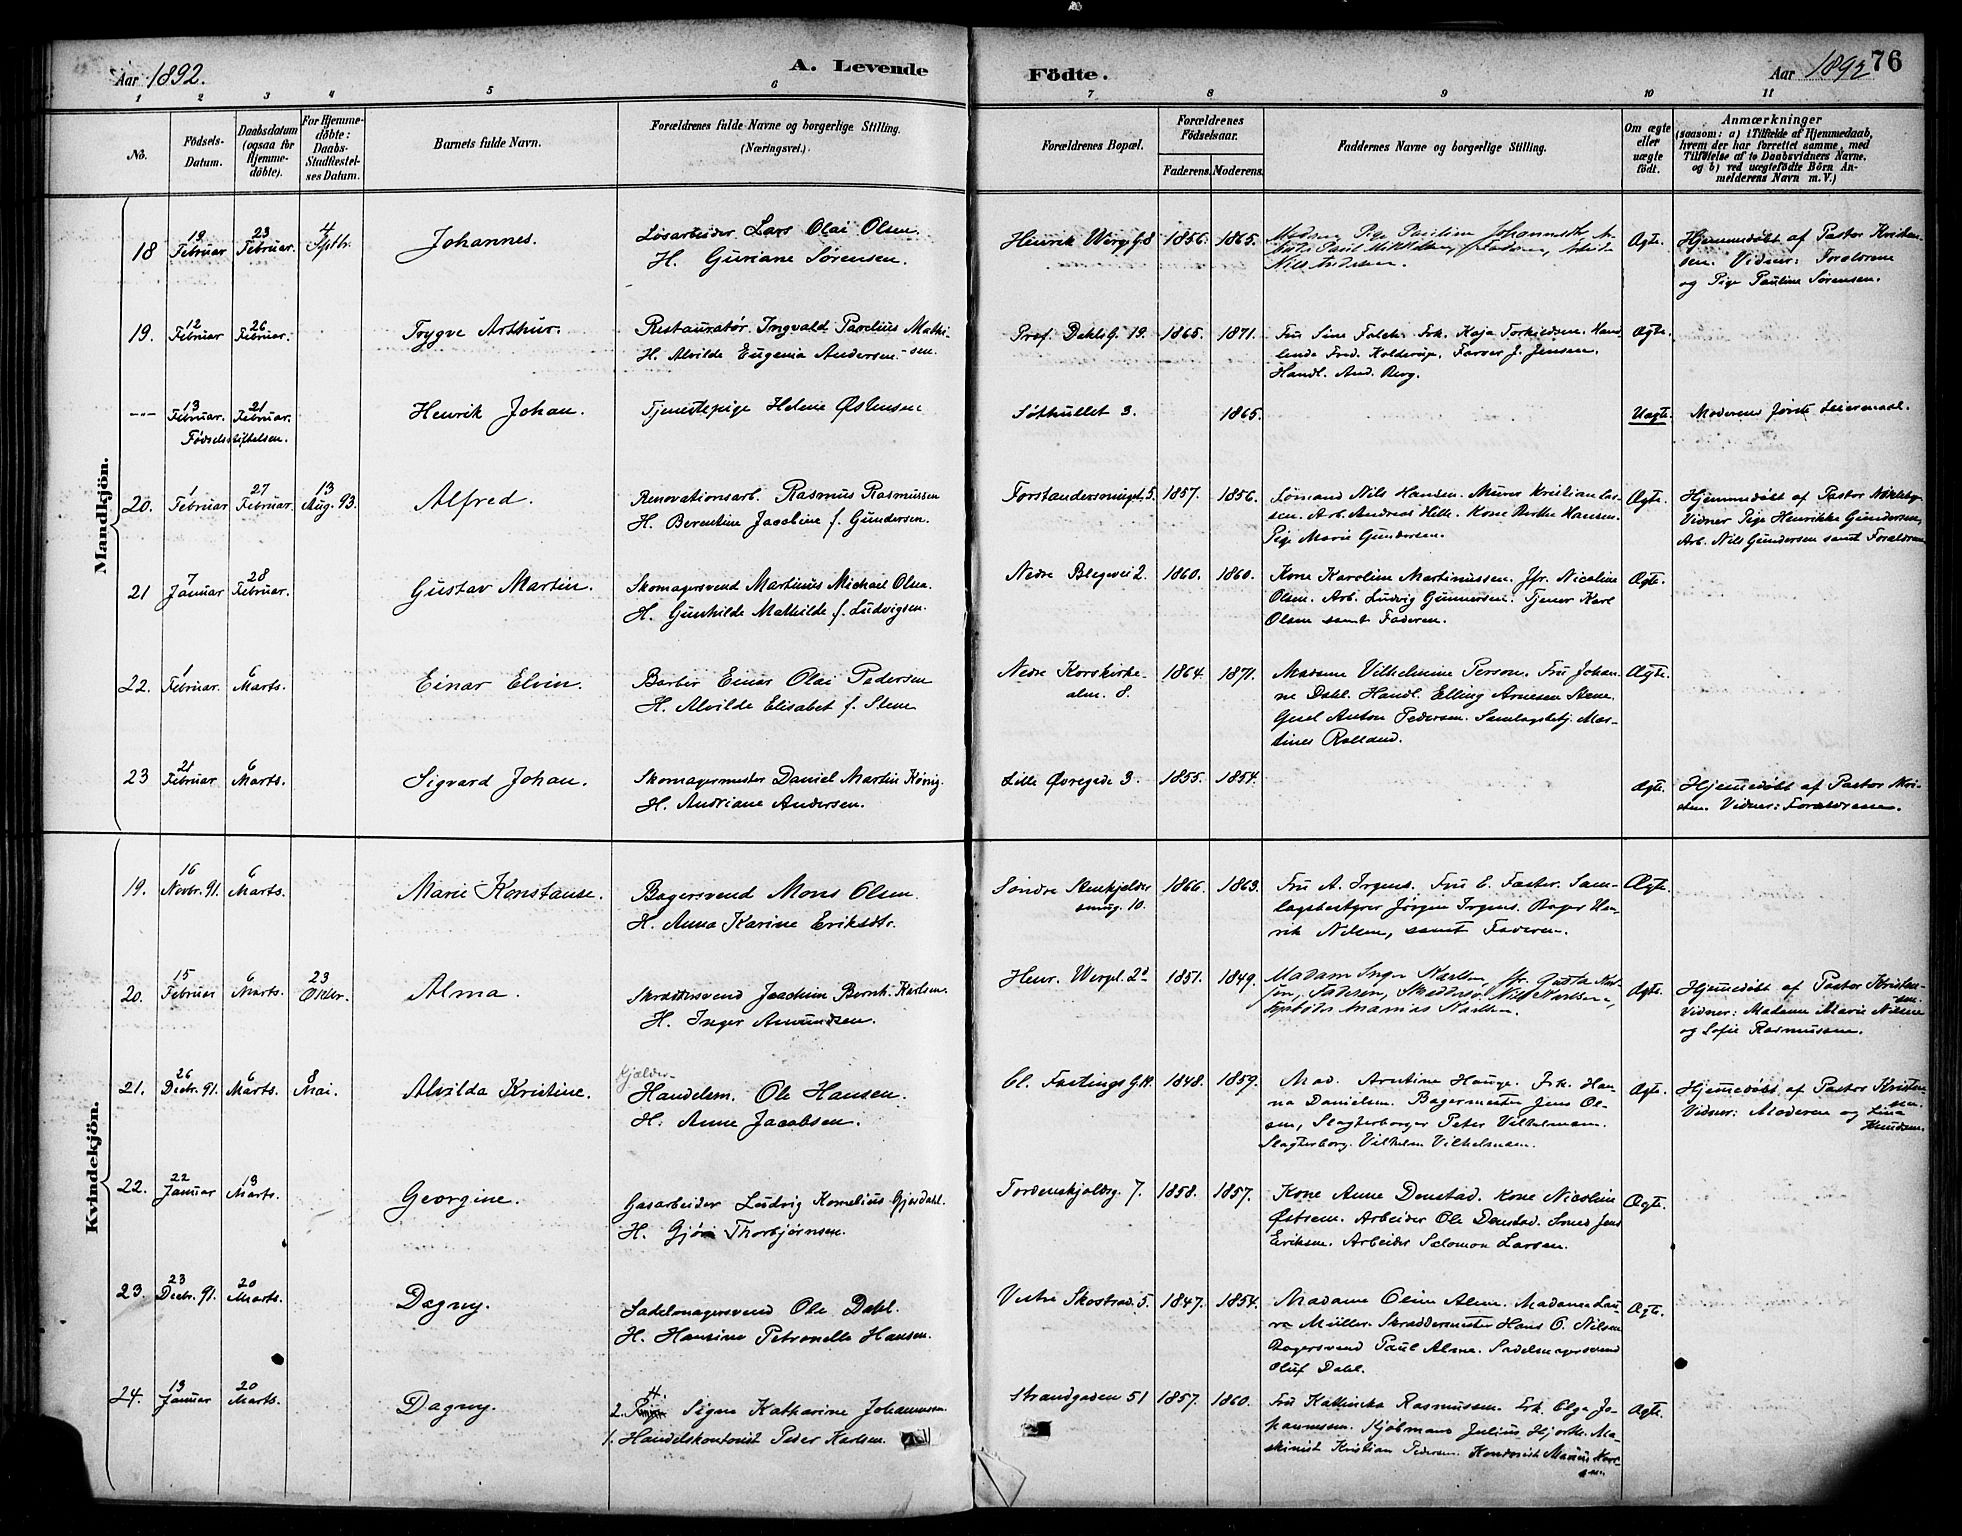 Aar 1892.
A. Levende
Födte.
Aar 1892
76
1 2 3 4 5 6 7 8 9 10 11
No.
Födsels-
Datum.
Daabsdatum
(ogsaa for
Hjemme-
döbte).
For Hjemme-
döbte:
Daabs-
Stadfæstel-
ses Datum.
Barnets fulde Navn.
Forældrenes fulde Navne og borgerlige Stilling.
(Næringsvei.)
Forældrenes Bopæl.
Forældrenes
Födselsaar.
Faderens. Moderens.
Faddernes Navne og borgerlige Stilling.
Om ægte
eller
uægte
födt.
Anmærkninger
(saasom: a) i Tilfælde af Hjemmedaab,
hvem der har forrettet samme, med
Tilföielse af to Daabsvidners Navne.
og b) ved uægtefödte Börn An-
melderens Navn m. V.)
Mandkjön.
18 19 Februar 23 Februar. 4 Septbr. Johannes. Løsarbeider Lars Olai Olsen.
H. Guriane Sørensen.
Henrik Wergl. G. 8 1856. 1865.
Nils Andersen.
Ægte. Hjemmedøbt af Pastor Kristen-
sen. Vidner: Forældrene
og Pige Pauline Sørensen.
19. 12 Februar 26 Februar. Trygve Arthur. Restauratør Ingvald Parelius Mathi-
H. Alvilde Eugenia Andersen. -sen.
Prof. Dahls G. 19. 1865. 1871. Fru Sine Falch. Frk. Kaja Torkildsen. Hand-
lende Fred. Kolderup. Farver J. Jensen.
Handl. And. Berg.
Ægte.
--- 13 Februar. 21 Februar.
Fødselsstiftelsen.
Henrik Johan. Tjenestepige Helene Østensen
Søthullet 3. 1865. Uægte. Moderens første Leiermaal.
20. 1 Februar 27 Februar. 13 Aug. 93. Alfred. Renovationsarb. Rasmus Rasmussen
H. Berentine Jacobine f. Gundersen.
Forstandersmuget 5. 1857. 1856. Sømand Nils Hansen. Murer Kristian Lar-
sen. Arb. Andreas Hille. Kone Berthe Hansen.
Pige Marie Gundersen.
Ægte. Hjemmedøbt af Pastor Nikleby
Vidner Pige Henrikke Gundersen,
Arb. Nils Gundersen samt Forældrene
21 7 Januar 28 Februar. Gustav Martin. Skomagersvend Martinus Michael Olsen
H. Gunhilde Mathilde f. Ludvigsen.
Nedre Blegevei 2. 1860. 1860. Kone Karoline Martinussen. Jfr. Nicoline
Olsen. Arb. Ludvig Gunnersen. Tjener Karl
Olsen samt Faderen.
Ægte.
22. 1 Februar. 6 Marts. Einar Elvin. Barber Einar Olai Pedersen
H. Alvilde Elisabet f. Stene
Nedre Korskirke-
alm. 8.
1864. 1871. Madame Vilhelmine Person. Fru Johan-
ne Dahl. Handl. Elling Arnesen Stene.
Gesel Anton Pedersen. Samlagsbetj. Mar-
tines Rolland.
Ægte.
23 21 Februar 6 Marts. Sigvard Johan. Skomagermester Daniel Martin König.
H. Andriane Andersen.
Lille Øvregade 3. 1855. 1854. Ægte. Hjemmedøbt af Pastor Kri-
sten. Vidner: Forældrene.
Kvindekjön.
19. 16 Novbr. 91. 6 Marts. Marie Konstanse. Bagersvend Mons Olsen.
H. Anna Karine Eriksdtr.
Søndre Stenkjelder-
smug. 10.
1866. 1863. Fru A. Irgens. Fru E. Faster. Sam-
lagsbestyrer Jørgen Irgens. Bager Hen-
rik Nilsen, samt Faderen.
Ægte.
20. 15 Februar 6 Marts. 23 Oktbr. Alma. Skræddersvend Joachim Bernh. Karlsen.
H. Inger Amundsen.
Henr. Wergl. 2d 1851. 1849. Madam Inger Karlsen,
Faderen, Skrædder Nils Karlsen,
Karlsen.
Ægte. Hjemmedøbt af Pastor Kristen-
sen.
Vidner: Madame Marie Nilsen
og Sofie Rasmussen.
21. 26 Decbr. 91. 6 Marts. 8 Mai. Alvilda Kristine. Kjælder-
Handelsm. Ole Hansen.
H. Anne Jacobsen.
Cl. Fastings G. 14. 1848. 1859. Mad. Arntine Hauge. Frk. Han-
na Danielsen. Bagermester Jens Ol-
sen, Slagterborger Peter Vilhelmsen.
Slagterborg. Vilhelm Vilhelmsen.
Ægte. Hjemmedøbt af Pastor Kristen-
sen.
Vidner: Moderen og Lina
Knudsen.
22. 22 Januar 13 Marts. Georgine. Gasarbeider Ludvig Kornelius Gjerdahl.
H. Gjøa Thorbjørnsen.
Tordenskjoldsg. 7. 1858. 1857. Kone Anne Denstad. Kone Nicoline
Østrem. Arbeider Ole Denstad. Smed Jens
Eriksen. Arbeider Salomon Larsen.
Ægte.
23. 23 Decbr. 91. 20 Marts. Dagny. Sadelmagersvend Ole Dahl.
H. Hansine Petronelle Hansen.
Vestre Skostræd. 5. 1847. 1854. Madame Oline Alme. Madame Lau-
ra Müller. Skræddermester Hans O. Nilsen
Bagersvend Paul Alme. Sadelmagersvend
Oluf Dahl.
Ægte.
24. 13 Januar 20 Marts. Dagny. H.
2. Signe Katharine Johannessen.
1. Handelskontorist Peder Karlsen.
Strandgaden 51 1857. 1860. Fru Kathinka Rasmussen. Frk. Olga Jo-
hannessen. Kjøbmand Julius Hjorth. Ma-
skinist Kristian Pedersen. Kontorist Marius Karl-
sen.
Ægte.